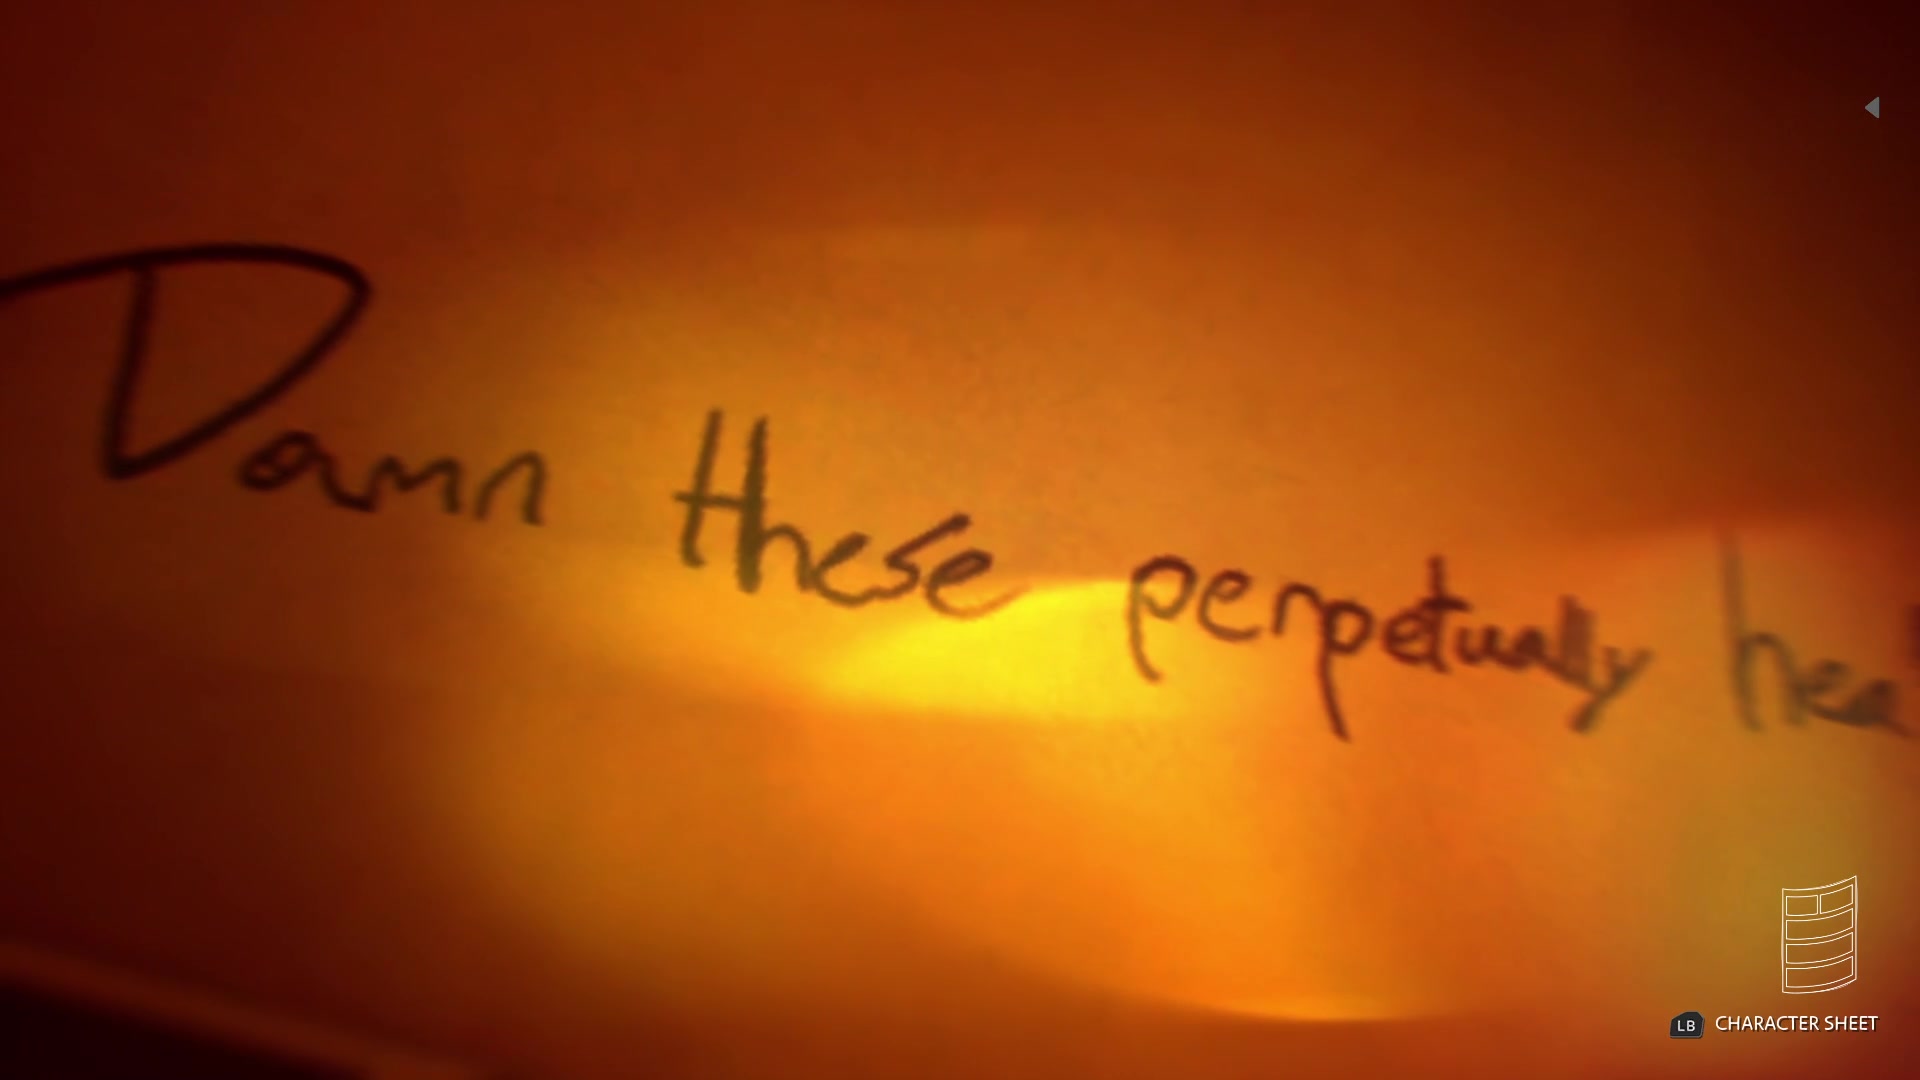 Damn these perpetually hea
LB CHARACTER SHEET